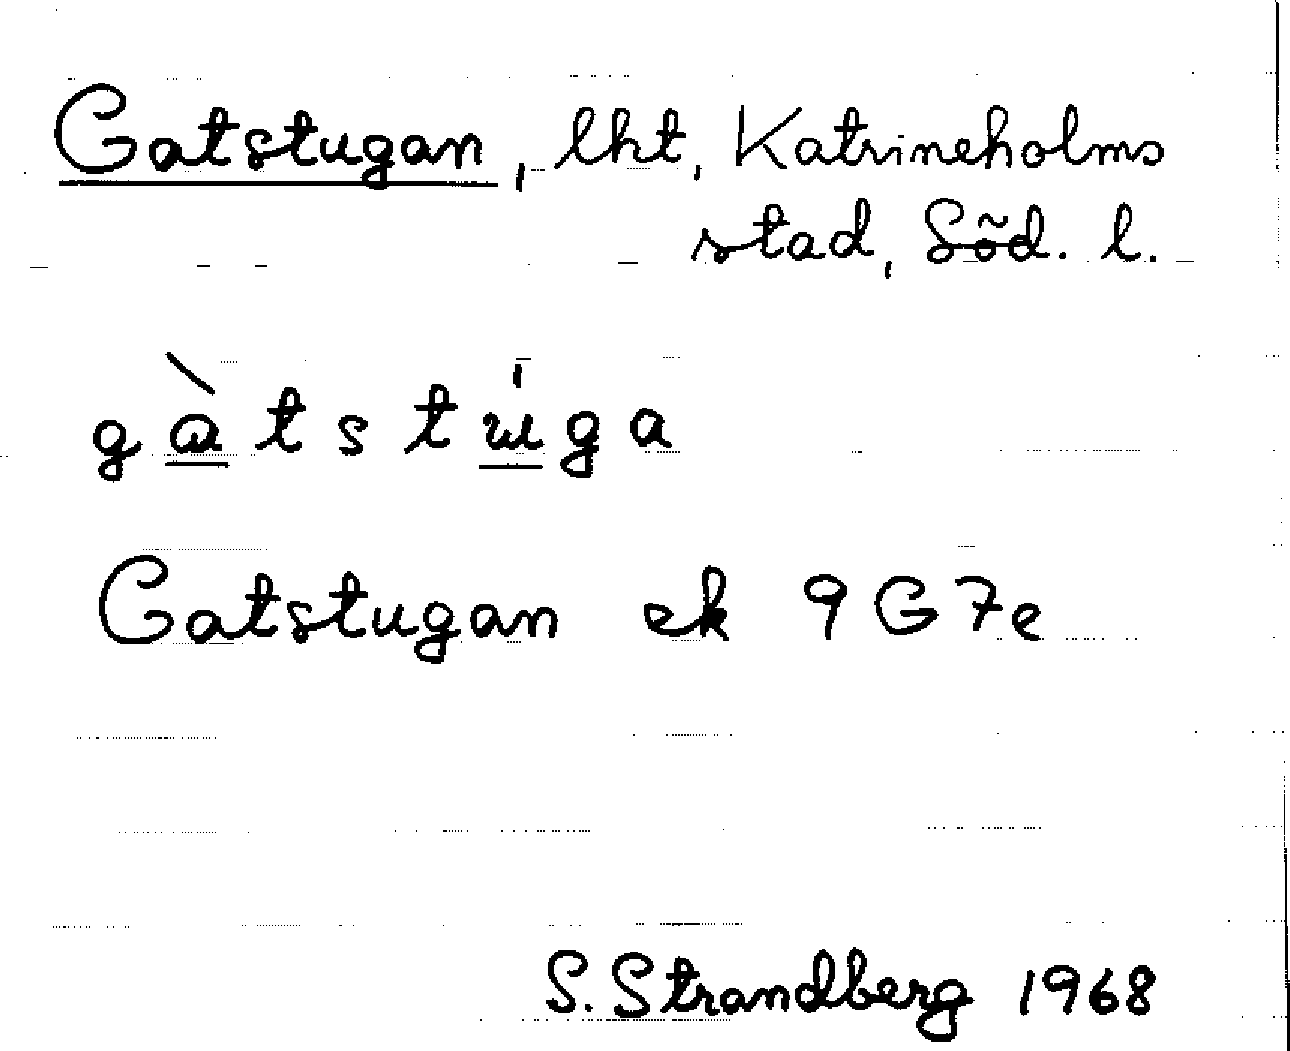 Gatstugan, lht, Katrineholms
stad, Söd. l.
gàtstuga
Gatstugan ek 9G7e
S. Strandberg 1968